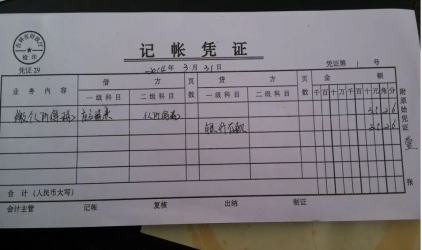 记帐凭证
凭证29
2014年3月31日
凭证第1号
业务内容 借方 页数 贷方 页数 金额
一级科目 二级科目 一级科目 二级科目 千百十万千百十元角分
缴个人所得税 个人所得税 2526
银行存款 2526
附原始凭证壹张
合计(人民币大写)
会计主管 记帐 复核 出纳 制证